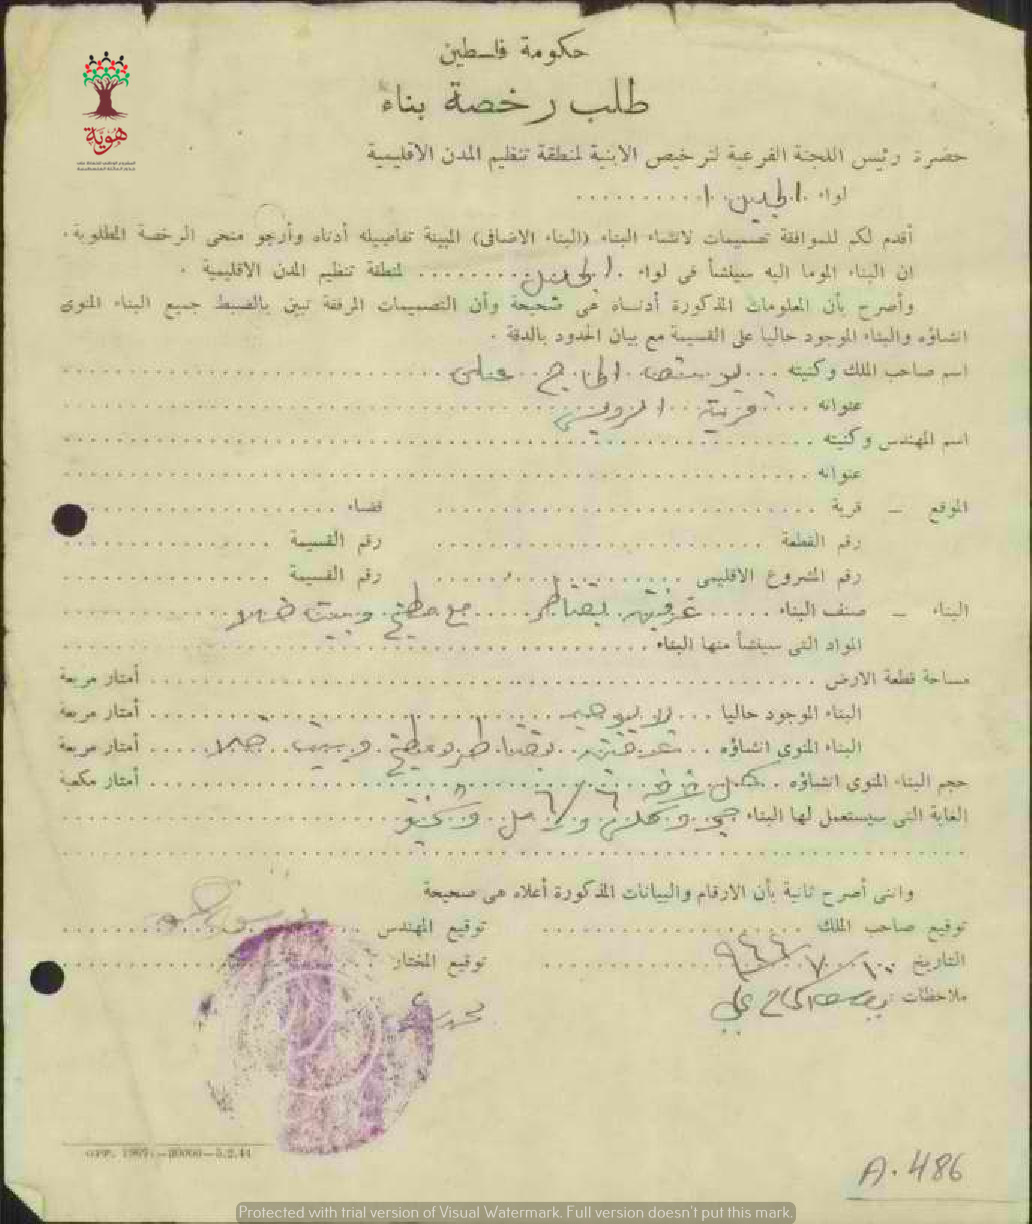 حكومة فلسطين
طلب رخصة بناء
هوية
حضرة رئيس اللجنة الفرعية لترخيص الابنية لمنطقة تنظيم المدن الاقليمية
لواء
أقدم لكم للموافقة تصميمات لانشاء البناء (البناء الاضافى) المبينة تفاصيله أدناه وأرجو منحى الرخصة المطلوبة.
ان البناء الموما اليه سينشأ فى لواء لمنطقة تنظيم المدن الاقليمية.
وأصرح بأن المعلومات المذكورة أدناه هى صحيحة وأن التصميمات المرفقة تبين بالضبط جميع البناء المنوى
انشاؤه والبناء الموجود حاليا على القسيمة مع بيان الحدود بالدقة.
اسم صاحب الملك وكنيته يوسف الحاج على
عنوانه قرية
اسم المهندس وكنيته
عنوانه
الموقع — قرية قضاء
رقم القطعة رقم القسيمة
رقم المشروع الاقليمى رقم القسيمة
البناء — صنف البناء مع مطبخ وبيت خلا
المواد التى سينشأ منها البناء
مساحة قطعة الارض أمتار مربعة
البناء الموجود حاليا لا يوجد أمتار مربعة
البناء المنوى انشاؤه ومطبخ وبيت خلا أمتار مربعة
حجم البناء المنوى انشاؤه كل غرفة أمتار مكعبة
الغاية التى سيستعمل لها البناء
وانى أصرح ثانية بأن الارقام والبيانات المذكورة أعلاه هى صحيحة
توقيع صاحب الملك توقيع المهندس
التاريخ توقيع المختار
ملاحظات: يوسف الحاج علي
GPP. 1967.—20000—5.2.44
A. 486
Protected with trial version of Visual Watermark. Full version doesn't put this mark.